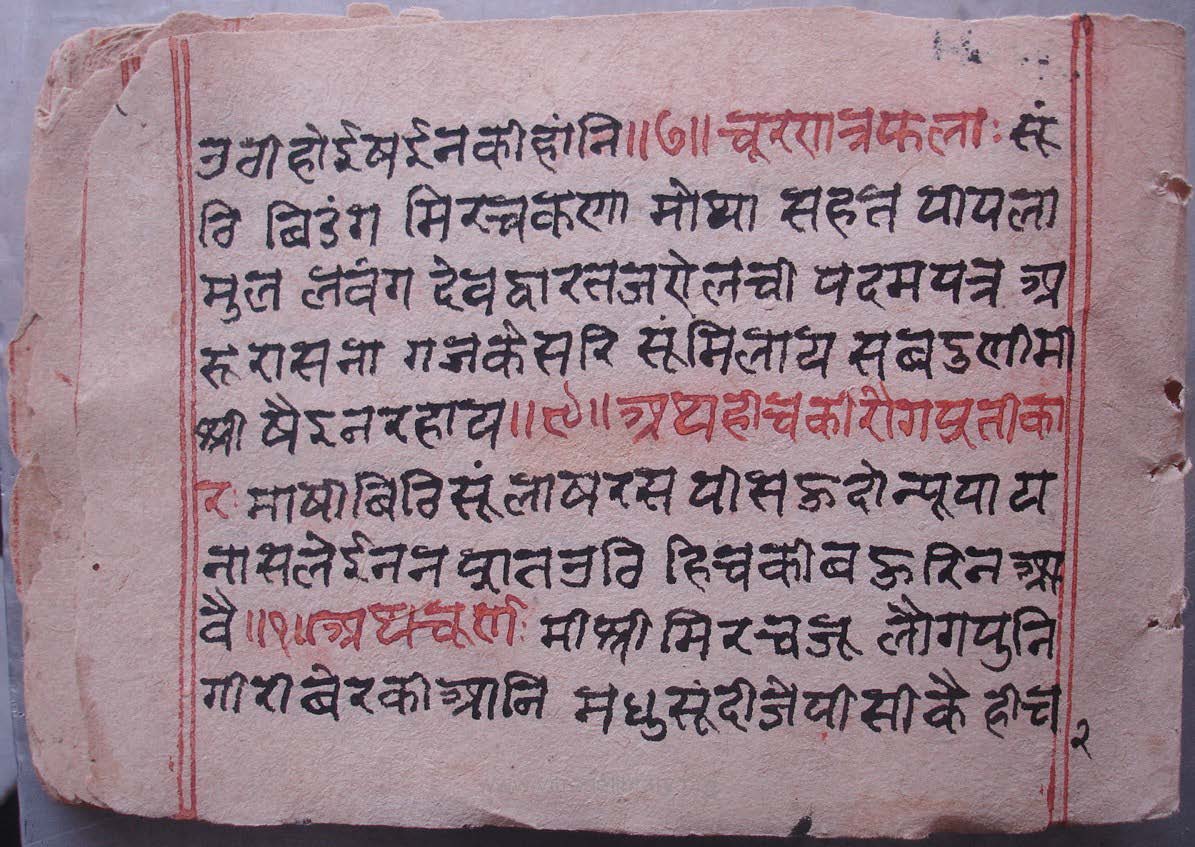 उगीहोईषईनकीहांनि॥७॥चूरणत्रफलाः सूं
ठि बिडंग मिरचकणा मोथा सहत पीपला
मुल लवंग देवद्वारतजऐलची पदमपत्र अ
रूरासना गजकेसरि सूंमिलाय सबगुणीमी
श्री षैईनरहाय॥९॥अथहीचकीरोगप्रतीका
रः माषीबिठिसूं लाषरसपीसऊदोन्यूपाय
नासलेईननप्रातउठि हिचकीबऊरिनआ
वै॥१॥अथचूर्णः मीश्रीमिरचजू लौगपुनि
गीरीबेरकीआनि मधुसूंदीजैपीसीकै हीच
२